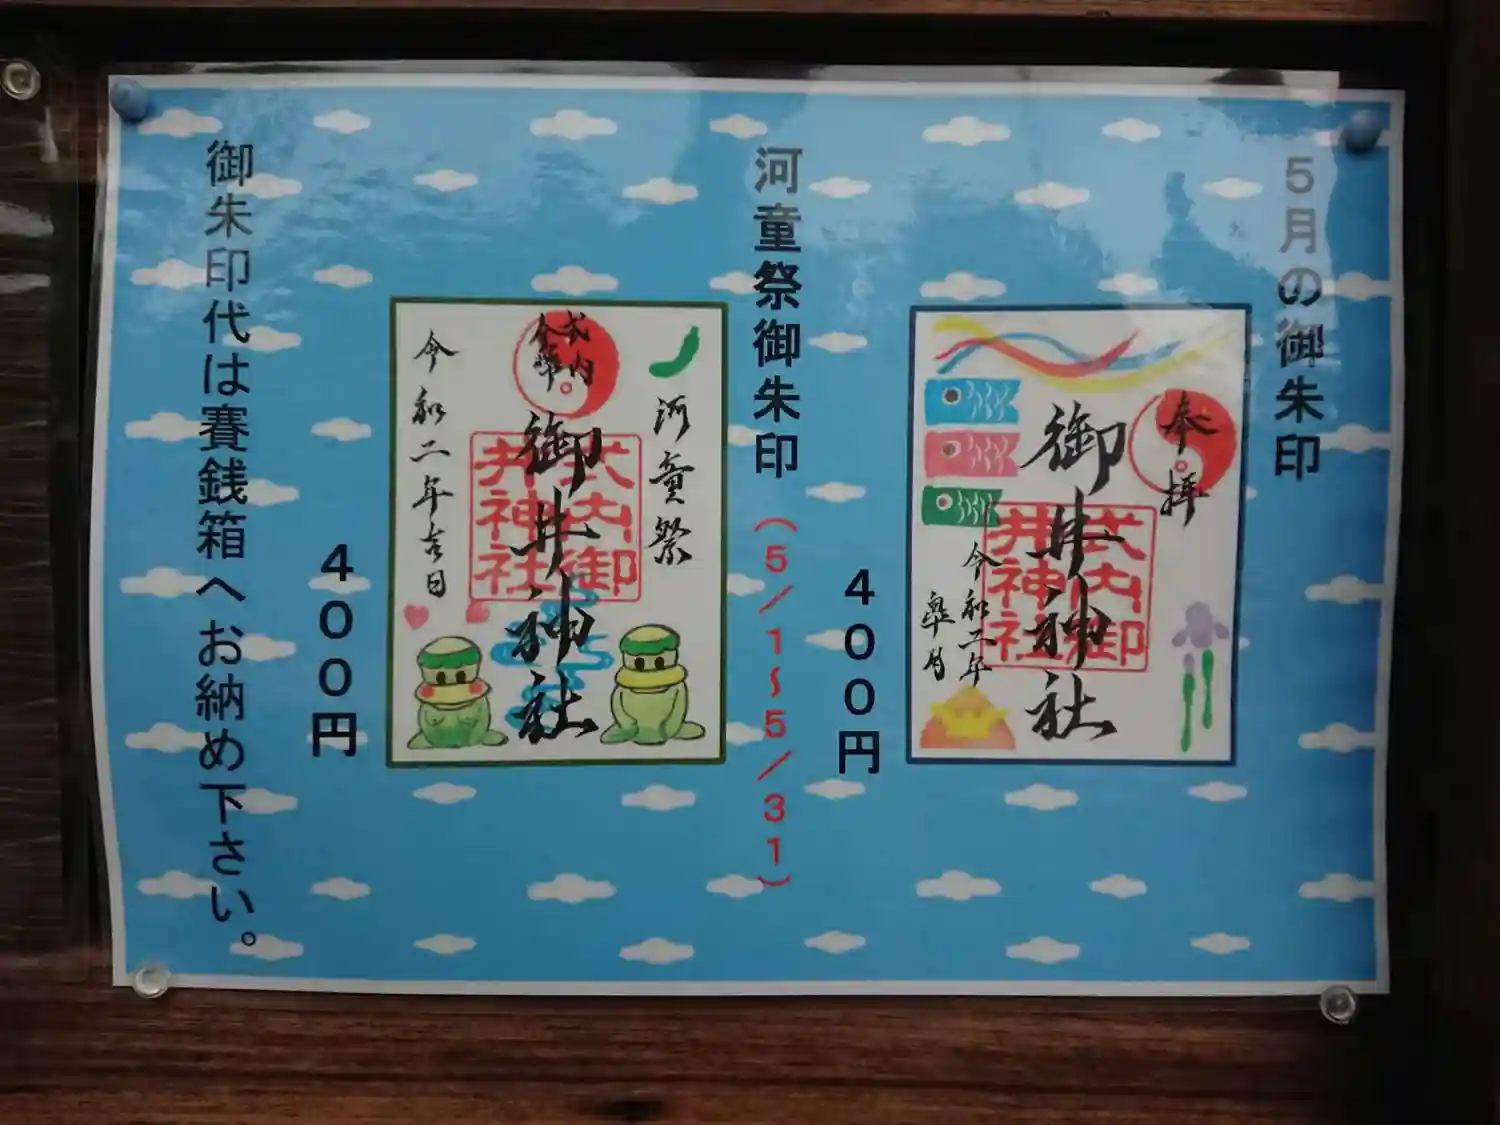 5月の御朱印
奉拝
御井神社
式内御
井神社
令和二年
皐月
400円
河童祭御朱印(5/1~5/31)
河童祭
式内
御井神社
式内御
井神社
令和二年吉日
400円
御朱印代は賽銭箱へお納め下さい。